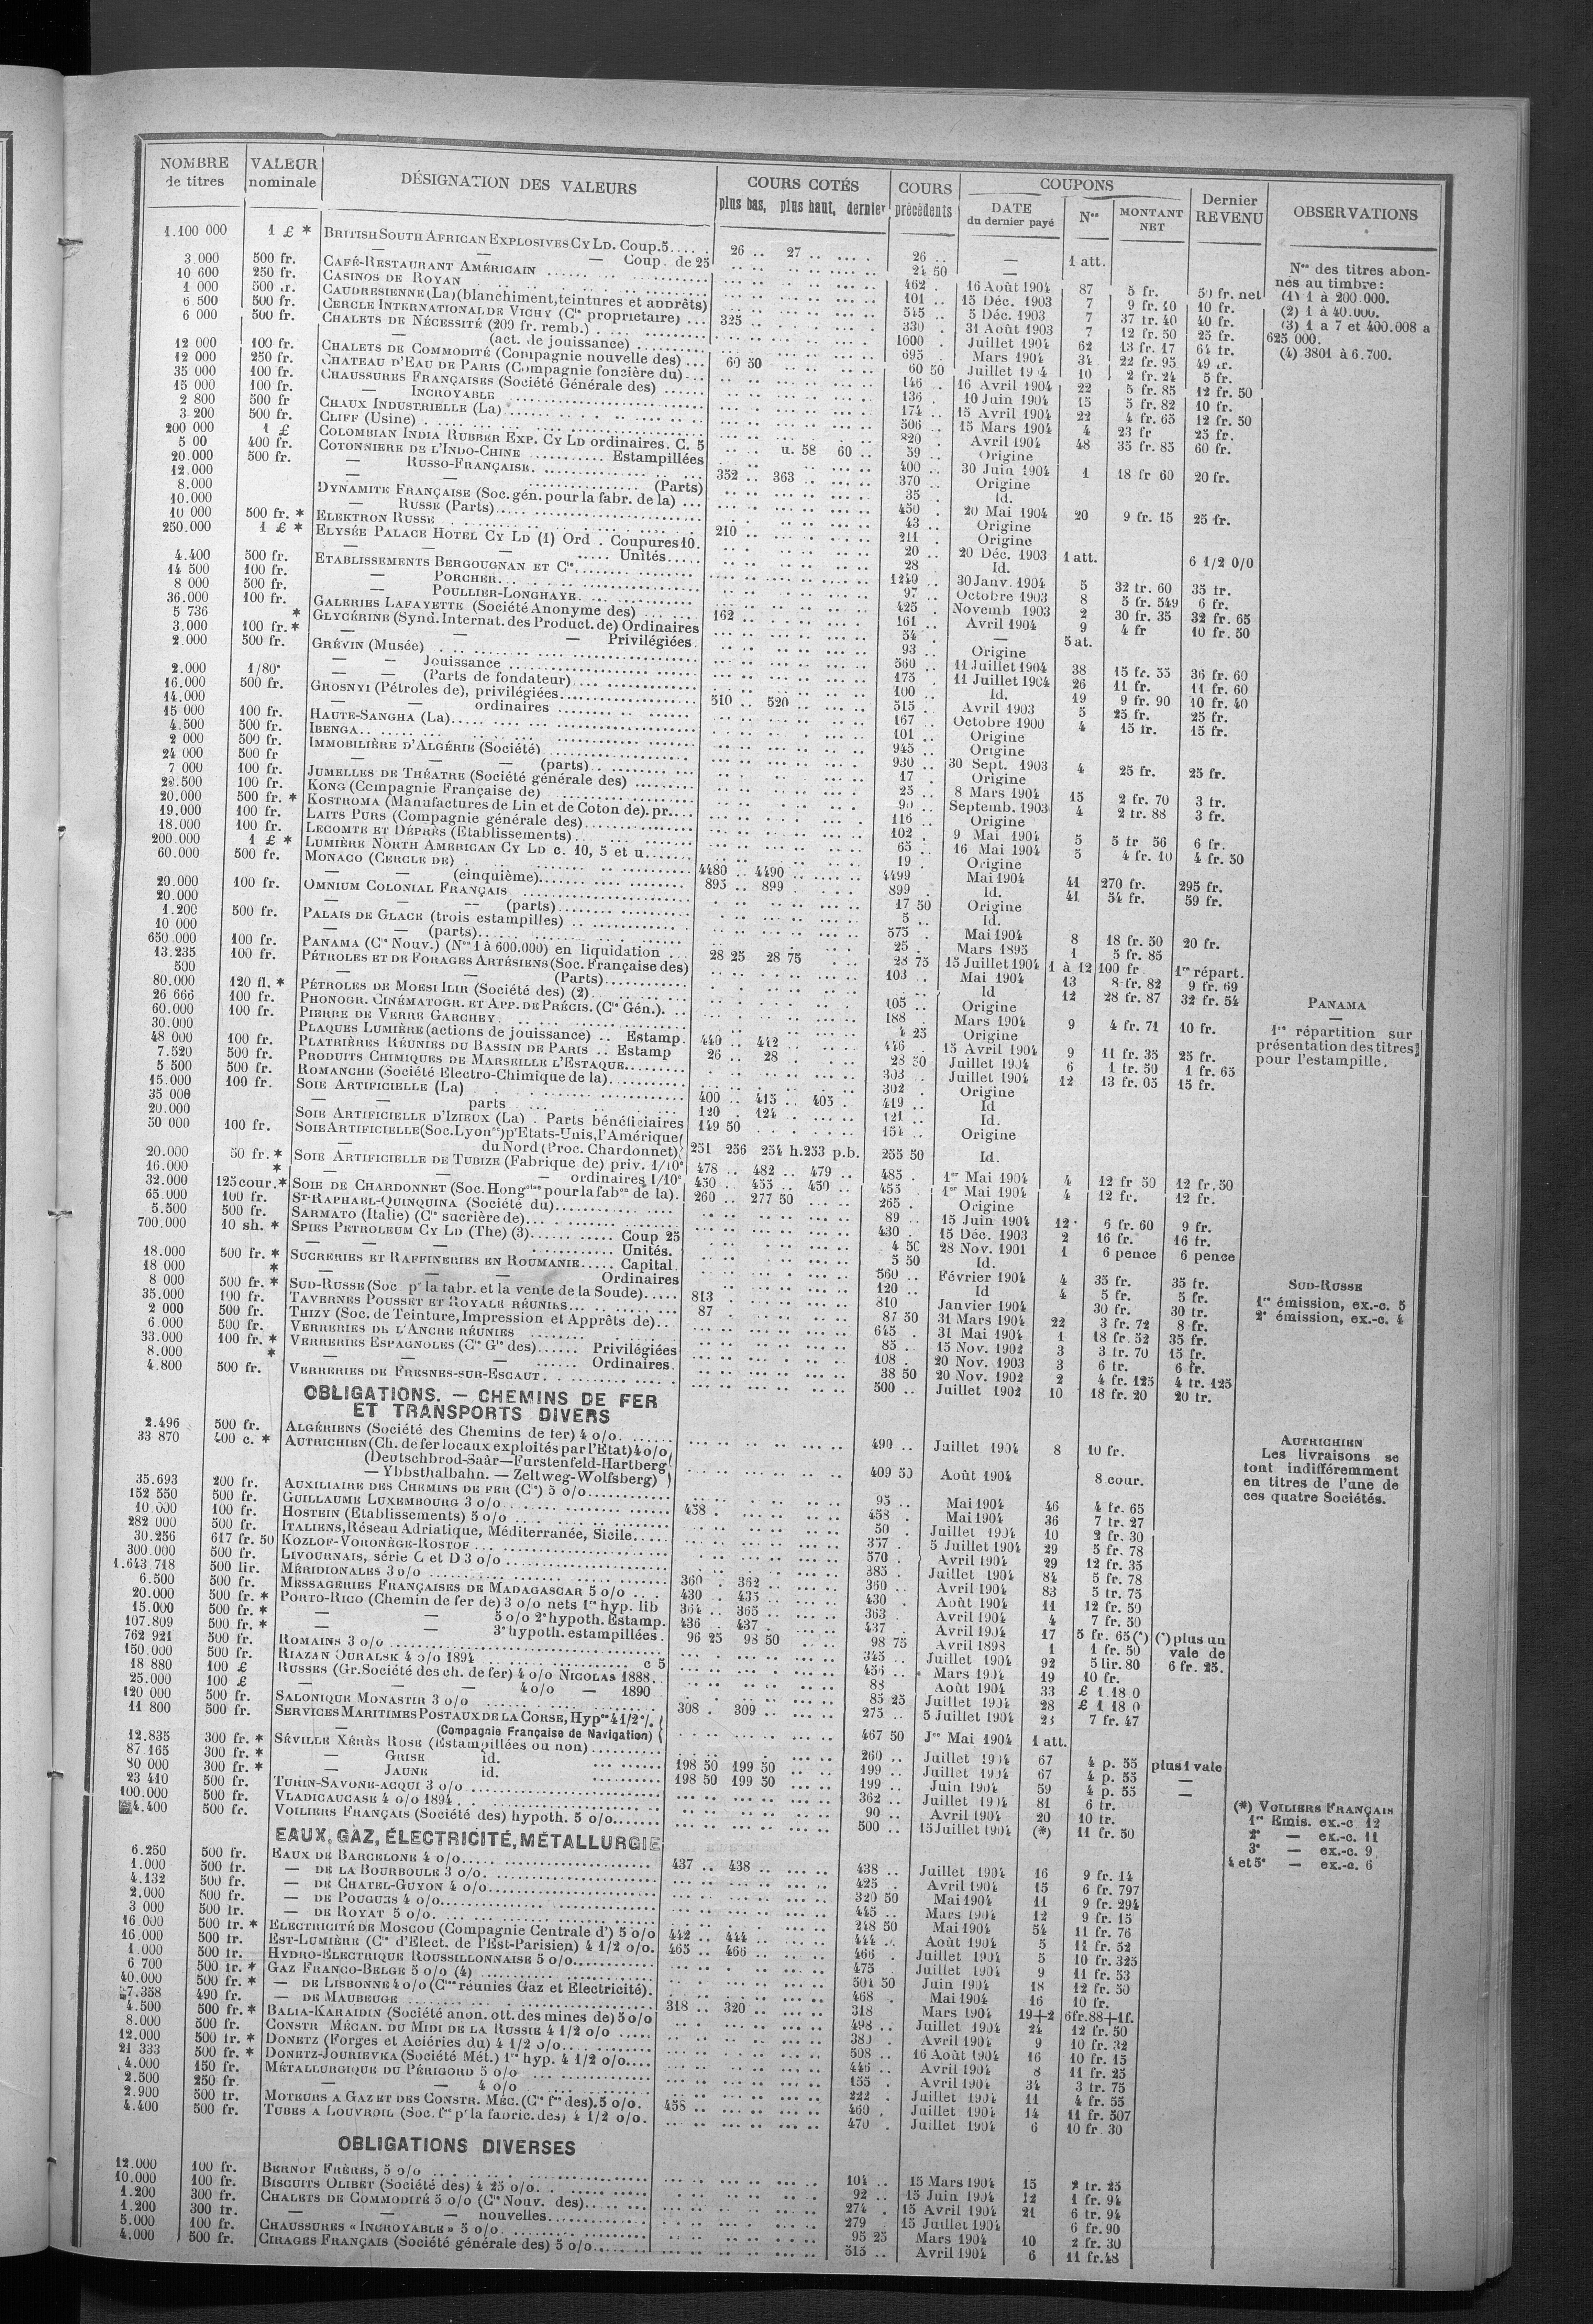 NOMBRE de titres | VALEUR nominale | DÉSIGNATION DES VALEURS | COURS COTÉS plus bas, plus haut, dernier | COURS précédents | COUPONS DATE du dernier payé | Nos | MONTANT NET | Dernier REVENU | OBSERVATIONS
1.100 000 1 £ * BRITISH SOUTH AFRICAN EXPLOSIVES CY LD. Coup. 5 26 .. 27 .. 26 .. — 1 att.
— — Coup. de 25 24 50 —
3.000 500 fr. CAFÉ-RESTAURANT AMÉRICAIN 462 . 16 Août 1904 87 5 fr. 50 fr. net
10 600 250 fr. CASINOS DE ROYAN 101 .. 15 Déc. 1903 7 9 fr. 40 10 fr.
1 000 500 fr. CAUDRESIENNE (La) (blanchiment, teintures et apprêts) 545 .. 5 Déc. 1903 7 37 fr. 40 40 fr.
6.500 500 fr. CERCLE INTERNATIONAL DE VICHY (Cie propriétaire) 325 .. 330 . 31 Août 1903 7 12 fr. 50 25 fr.
6 000 500 fr. CHALETS DE NÉCESSITÉ (200 fr. remb.) 1000 . Juillet 1904 62 13 fr. 17 64 fr.
— (act. de jouissance) 695 . Mars 1904 34 22 fr. 95 49 fr.
12 000 100 fr. CHALETS DE COMMODITÉ (Compagnie nouvelle des) 60 50 60 50 Juillet 1904 10 2 fr. 24 5 fr.
12 000 250 fr. CHATEAU D'EAU DE PARIS (Compagnie foncière du) 146 .. 16 Avril 1904 22 5 fr. 85 12 fr. 50
35 000 100 fr. CHAUSSURES FRANÇAISES (Société Générale des) 136 . 10 Juin 1904 15 5 fr. 82 10 fr.
15 000 100 fr. — INCROYABLE 174 .. 15 Avril 1904 22 4 fr. 65 12 fr. 50
2 800 500 fr CHAUX INDUSTRIELLE (La) 506 .. 15 Mars 1904 4 23 fr 25 fr.
3 200 500 fr. CLIFF (Usine) 820 . Avril 1904 48 35 fr. 85 60 fr.
200 000 1 £ COLOMBIAN INDIA RUBBER EXP. CY LD ordinaires. C. 5 u. 58 60 .. 59 .. Origine
5 00 400 fr. COTONNIERE DE L'INDO-CHINE Estampillées 400 .. 30 Juin 1904 1 18 fr 60 20 fr.
20.000 500 fr. — RUSSO-FRANÇAISE 352 .. 363 .. 370 .. Origine
12.000 — (Parts) 35 . Id.
8.000 DYNAMITE FRANÇAISE (Soc. gén. pour la fabr. de la) 450 . 20 Mai 1904 20 9 fr. 15 25 fr.
10.000 — RUSSE (Parts) 43 .. Origine
10 000 500 fr. * ELEKTRON RUSSE 210 .. 211 . Origine
250.000 1 £ * ELYSÉE PALACE HOTEL CY LD (1) Ord. Coupures 10. 20 .. 20 Déc. 1903 1 att. 6 1/2 0/0
— — — Unités 28 Id.
4.400 500 fr. ETABLISSEMENTS BERGOUGNAN ET Cie 1249 .. 30 Janv. 1904 5 32 fr. 60 35 fr.
14 500 100 fr. — PORCHER 97 .. Octobre 1903 8 5 fr. 549 6 fr.
8 000 500 fr. — POULLIER-LONGHAYE 425 . Novemb 1903 2 30 fr. 35 32 fr. 65
36.000 100 fr. GALERIES LAFAYETTE (Société Anonyme des) 162 .. 161 .. Avril 1904 9 4 fr 10 fr. 50
5 736 * GLYCÉRINE (Synd. Internat. des Product. de) Ordinaires 54 . — 5 at.
3.000 100 fr. * — — — Privilégiées 93 .. Origine
2.000 500 fr. GRÉVIN (Musée) 560 .. 11 Juillet 1904 38 15 fr. 55 36 fr. 60
— — Jouissance 175 . 11 Juillet 1904 26 11 fr. 11 fr. 60
2.000 1/80e — — (Parts de fondateur) 100 .. Id. 19 9 fr. 90 10 fr. 40
16.000 500 fr. GROSNYI (Pétroles de), privilégiées 510 .. 520 .. 515 . Avril 1903 5 25 fr. 25 fr.
14.000 — ordinaires 167 .. Octobre 1900 4 15 fr. 15 fr.
15 000 100 fr. HAUTE-SANGHA (La) 101 .. Origine
4.500 500 fr. IBENGA 945 .. Origine
2 000 500 fr. IMMOBILIÈRE D'ALGÉRIE (Société) 930 .. 30 Sept. 1903 4 25 fr. 25 fr.
24 000 500 fr — — (parts) 17 . Origine
7 000 100 fr. JUMELLES DE THÉATRE (Société générale des) 25 .. 8 Mars 1904 15 2 fr. 70 3 fr.
100 fr. KONG (Compagnie Française de) 90 .. Septemb. 1903 4 2 fr. 88 3 fr.
20.000 500 fr. * KOSTROMA (Manufactures de Lin et de Coton de). pr. 116 .. Origine
19.000 100 fr. LAITS PURS (Compagnie générale des) 102 . 9 Mai 1904 5 5 fr 56 6 fr.
18.000 100 fr. LECOMTE ET DÉPRÈS (Etablissements) 65 .. 16 Mai 1904 5 4 fr. 10 4 fr. 50
200.000 1 £ * LUMIÈRE NORTH AMERICAN CY LD c. 10, 5 et u. 19 . Origine
60.000 500 fr. MONACO (CERCLE DE) 4480 .. 4490 .. 4499 Mai 1904 41 270 fr. 295 fr.
— — (cinquième) 895 .. 899 . 899 . Id. 41 54 fr. 59 fr.
20.000 100 fr. OMNIUM COLONIAL FRANÇAIS 17 50 Origine
20.000 — — (parts) 5 .. Id.
1.200 500 fr. PALAIS DE GLACE (trois estampilles) 575 . Mai 1904 8 18 fr. 50 20 fr.
10 000 — — (parts) 25 . Mars 1895 1 5 fr. 85
650.000 100 fr. PANAMA (Cie Nouv.) (Nos 1 à 600.000) en liquidation 28 25 28 75 28 75 15 Juillet 1904 1 à 12 100 fr 1re répart.
13.235 100 fr. PÉTROLES ET DE FORAGES ARTÉSIENS (Soc. Française des) 103 . Mai 1904 13 8 fr. 82 9 fr. 69
500 — — (Parts) .. Id 12 28 fr. 87 32 fr. 54
80.000 120 fl. * PÉTROLES DE MOESI ILIR (Société des) (2) 105 .. Origine
26 666 100 fr. PHONOGR. CINÉMATOGR. ET APP. DE PRÉCIS. (Cie Gén.) 188 . Mars 1904 9 4 fr. 71 10 fr.
60.000 100 fr. PIERRE DE VERRE GARCHEY 4 25 Origine
30.000 PLAQUES LUMIÈRE (actions de jouissance) .. Estamp. 440 .. 442 .. 446 .. 15 Avril 1904 9 11 fr. 35 25 fr.
48 000 100 fr. PLATRIÈRES RÉUNIES DU BASSIN DE PARIS .. Estamp 26 .. 28 . 28 50 Juillet 1904 6 1 fr. 50 1 fr. 65
7.520 500 fr. PRODUITS CHIMIQUES DE MARSEILLE L'ESTAQUE 303 .. Juillet 1904 12 13 fr. 05 15 fr.
5 500 500 fr. ROMANCHE (Société Electro-Chimique de la) 302 . Origine
15.000 100 fr. SOIE ARTIFICIELLE (La) 400 .. 415 .. 405 . 419 .. Id
35 000 — — parts 120 . 124 . 121 .. Id.
20.000 SOIE ARTIFICIELLE D'IZIEUX (La) . Parts bénéficiaires 149 50 154 .. Origine
50 000 100 fr. SOIE ARTIFICIELLE (Soc. Lyonse) pr Etats-Unis, l'Amérique
— du Nord (Proc. Chardonnet) 251 256 254 h. 253 p.b. 255 50 Id.
20.000 50 fr. * SOIE ARTIFICIELLE DE TUBIZE (Fabrique de) priv. 1/10e 478 .. 482 .. 479 .. 485 . 1er Mai 1904 4 12 fr 50 12 fr. 50
16.000 * — — ordinaires 1/10e 450 .. 455 .. 450 .. 455 . 1er Mai 1904 4 12 fr. 12 fr.
32.000 125 cour. * SOIE DE CHARDONNET (Soc. Hongoise pour la fabon de la). 260 .. 277 50 265 . Origine
65 000 100 fr. ST-RAPHAEL-QUINQUINA (Société du) 89 .. 15 Juin 1904 12 6 fr. 60 9 fr.
5.500 500 fr. SARMATO (Italie) (Cie sucrière de) 430 . 15 Déc. 1903 2 16 fr. 16 fr.
700.000 10 sh. * SPIES PETROLEUM CY LD (The) (3) Coup 25 4 50 28 Nov. 1901 1 6 pence 6 pence
— — — Unités. 5 50 Id.
18.000 500 fr. * SUCRERIES ET RAFFINERIES EN ROUMANIE Capital. 560 .. Février 1904 4 35 fr. 35 fr.
18 000 * — — — Ordinaires 120 .. Id 4 5 fr. 5 fr.
8 000 500 fr. * SUD-RUSSE (Soc pr la fabr. et la vente de la Soude) 813 810 Janvier 1904 30 fr. 30 fr.
35.000 100 fr. TAVERNES POUSSET ET ROYALE RÉUNIES 87 . 87 50 31 Mars 1904 22 3 fr. 72 8 fr.
2 000 500 fr. THIZY (Soc. de Teinture, Impression et Apprêts de) 645 . 31 Mai 1904 1 18 fr. 52 35 fr.
6.000 500 fr. VERRERIES DE L'ANCRE RÉUNIES 85 . 15 Nov. 1902 3 3 fr. 70 15 fr.
33.000 100 fr. * VERRERIES ESPAGNOLES (Cie Gle des) Privilégiées 108 . 20 Nov. 1903 3 6 fr. 6 fr.
8.000 * — — — Ordinaires. 38 50 20 Nov. 1902 2 4 fr. 125 4 fr. 125
4.800 500 fr. VERRERIES DE FRESNES-SUR-ESCAUT 500 .. Juillet 1902 10 18 fr. 20 20 fr.
OBLIGATIONS. — CHEMINS DE FER
ET TRANSPORTS DIVERS
2.496 500 fr. ALGÉRIENS (Société des Chemins de fer) 4 o/o 490 .. Juillet 1904 8 10 fr.
33 870 400 c. * AUTRICHIEN (Ch. de fer locaux exploités par l'Etat) 4 o/o
(Deutschbrod-Saâr—Furstenfeld-Hartberg
— Ybbsthalbahn. — Zeltweg-Wolfsberg) 409 50 Août 1904 8 cour.
35.693 200 fr. AUXILIAIRE DES CHEMINS DE FER (Cie) 5 o/o 95 .. Mai 1904 46 4 fr. 65
152 550 500 fr. GUILLAUME LUXEMBOURG 3 o/o 458 . 458 . Mai 1904 36 7 fr. 27
10.000 100 fr. HOSTEIN (Etablissements) 5 o/o 50 . Juillet 1904 10 2 fr. 30
282 000 500 fr. ITALIENS, Réseau Adriatique, Méditerranée, Sicile 357 . 5 Juillet 1904 29 5 fr. 78
30.256 617 fr. 50 KOZLOF-VORONÈGE-ROSTOF 570 . Avril 1904 29 12 fr. 35
300.000 500 fr. LIVOURNAIS, série C et D 3 o/o 385 . Juillet 1904 84 5 fr. 78
1.643 718 500 lir. MÉRIDIONALES 3 o/o 360 . 362 .. 360 .. Avril 1904 83 5 fr. 75
6.500 500 fr. MESSAGERIES FRANÇAISES DE MADAGASCAR 5 o/o 430 .. 435 .. 430 . Août 1904 11 12 fr. 50
20.000 500 fr. * PORTO-RICO (Chemin de fer de) 3 o/o nets 1re hyp. lib 364 .. 365 .. 363 . Avril 1904 4 7 fr. 50
15.000 500 fr. * — — 5 o/o 2e hypoth. Estamp. 436 .. 437 . 437 . Avril 1904 17 5 fr. 65 (*) (*) plus un
107.809 500 fr. * — — 3e hypoth. estampillées. 96 25 98 50 98 75 Avril 1898 1 1 fr. 50 vale de
762 921 500 fr. ROMAINS 3 o/o 345 .. Juillet 1904 92 5 lir. 80 6 fr. 25.
150.000 500 fr. RIAZAN OURALSK 4 o/o 1894 c 5 456 .. Mars 1904 19 10 fr.
18 880 100 £ RUSSES (Gr. Société des ch. de fer) 4 o/o NICOLAS 1888 88 Août 1904 33 £ 1.18 0
25.000 100 £ — — 4 o/o — 1890 85 25 Juillet 1904 28 £ 1 18 0
120 000 500 fr. SALONIQUE MONASTIR 3 o/o 308 . 309 .. 275 .. 5 Juillet 1904 23 7 fr. 47
11 800 500 fr. SERVICES MARITIMES POSTAUX DE LA CORSE, Hypre 4 1/2 %.
— (Compagnie Française de Navigation) 467 50 Jer Mai 1904 1 att.
12.835 300 fr. * SÉVILLE XÉRÈS ROSE (Estampillées ou non) 260 .. Juillet 1904 67 4 p. 55 plus 1 vale
87 165 300 fr. * — GRISE id. 198 50 199 50 199 .. Juillet 1904 67 4 p. 55 —
80 000 300 fr. * — JAUNE id. 198 50 199 50 199 .. Juin 1904 59 4 p. 55 —
23 410 500 fr. TURIN-SAVONE-ACQUI 3 o/o 362 .. Juillet 1904 81 6 fr.
100.000 500 fr. VLADICAUCASE 4 o/o 1894 90 .. Avril 1904 20 10 fr.
4.400 500 fr. VOILIERS FRANÇAIS (Société des) hypoth. 5 o/o 500 .. 15 Juillet 1904 (*) 11 fr. 50
EAUX, GAZ, ÉLECTRICITÉ, MÉTALLURGIE
6.250 500 fr. EAUX DE BARCELONE 4 o/o 437 .. 438 .. 438 .. Juillet 1904 16 9 fr. 14
1.000 300 fr. — DE LA BOURBOULE 3 o/o 425 .. Avril 1904 15 6 fr. 797
4.132 500 fr. — DE CHATEL-GUYON 4 o/o 320 50 Mai 1904 11 9 fr. 294
2.000 500 fr. — DE POUGUES 4 o/o 445 .. Mars 1904 12 9 fr. 15
3 000 500 fr. — DE ROYAT 5 o/o 248 50 Mai 1904 54 11 fr. 76
16.000 500 fr. * ELECTRICITÉ DE MOSCOU (Compagnie Centrale d') 5 o/o 442 .. 444 .. 444 .. Août 1904 5 11 fr. 52
16.000 500 fr. EST-LUMIÈRE (Cie d'Elect. de l'Est-Parisien) 4 1/2 o/o. 465 .. 466 .. 466 . Juillet 1904 5 10 fr. 325
1.000 500 fr. HYDRO-ELECTRIQUE ROUSSILLONNAISE 5 o/o 475 . Juillet 1904 9 11 fr. 53
6 700 500 fr. * GAZ FRANCO-BELGE 5 o/o (4) 504 50 Juin 1904 18 12 fr. 50
40.000 500 fr. * — DE LISBONNE 4 o/o (Cies réunies Gaz et Electricité). 468 . Mai 1904 16 10 fr.
7.358 490 fr. — DE MAUBEUGE 318 .. 320 .. 318 Mars 1904 19+2 6 fr. 88+1f.
4.500 500 fr. * BALIA-KARAIDIN (Société anon. ott. des mines de) 5 o/o 498 .. Juillet 1904 24 12 fr. 50
8.000 500 fr. CONSTR MÉCAN. DU MIDI DE LA RUSSIE 4 1/2 o/o 380 .. Avril 1904 9 10 fr. 32
12.000 500 fr. * DONETZ (Forges et Aciéries du) 4 1/2 o/o 508 .. 16 Août 1904 16 10 fr. 15
21 333 500 fr. * DONETZ-JOURIEVKA (Société Mét.) 1re hyp. 4 1/2 o/o 446 .. Avril 1904 8 11 fr. 25
4.000 150 fr. MÉTALLURGIQUE DU PÉRIGORD 5 o/o 155 . Avril 1904 34 3 fr. 75
2.500 250 fr. — — 4 o/o 222 . Juillet 1904 11 4 fr. 55
2.900 500 fr. MOTEURS A GAZ ET DES CONSTR. MÉC. (Cie fse des). 5 o/o. 458 .. 460 . Juillet 1904 14 11 fr. 507
4.400 500 fr. TUBES A LOUVROIL (Soc. fse pr la fabric. des) 4 1/2 o/o. 470 . Juillet 1904 6 10 fr. 30
OBLIGATIONS DIVERSES
12.000 100 fr. BERNOT FRÈRES, 5 o/o 104 .. 15 Mars 1904 15 2 fr. 25
10.000 100 fr. BISCUITS OLIBET (Société des) 4 25 o/o 92 .. 15 Juin 1904 12 1 fr. 94
1.200 300 fr. CHALETS DE COMMODITÉ 5 o/o (Cie Nouv. des) 274 . 15 Avril 1904 21 6 fr. 94
1.200 300 fr. — — nouvelles 279 15 Juillet 1904 6 fr. 90
5.000 100 fr. CHAUSSURES « INCROYABLE » 5 o/o 95 25 Mars 1904 10 2 fr. 30
4.000 500 fr. CIRAGES FRANÇAIS (Société générale des) 5 o/o 515 .. Avril 1904 6 11 fr. 48
Nos des titres abon-
nés au timbre:
(1) 1 à 200.000.
(2) 1 à 40.000.
(3) 1 a 7 et 400.008 a
625 000.
(4) 3801 à 6.700.
PANAMA
—
1re répartition sur
présentation des titres
pour l'estampille.
SUD-RUSSE
1re émission, ex.-c. 5
2e émission, ex.-c. 4
AUTRICHIEN
Les livraisons se
font indifféremment
en titres de l'une de
ces quatre Sociétés.
(*) VOILIERS FRANÇAIS
1re Emis. ex.-c 12
2e — ex.-c. 11
3e — ex.-c. 9
4 et 5e — ex.-c. 6